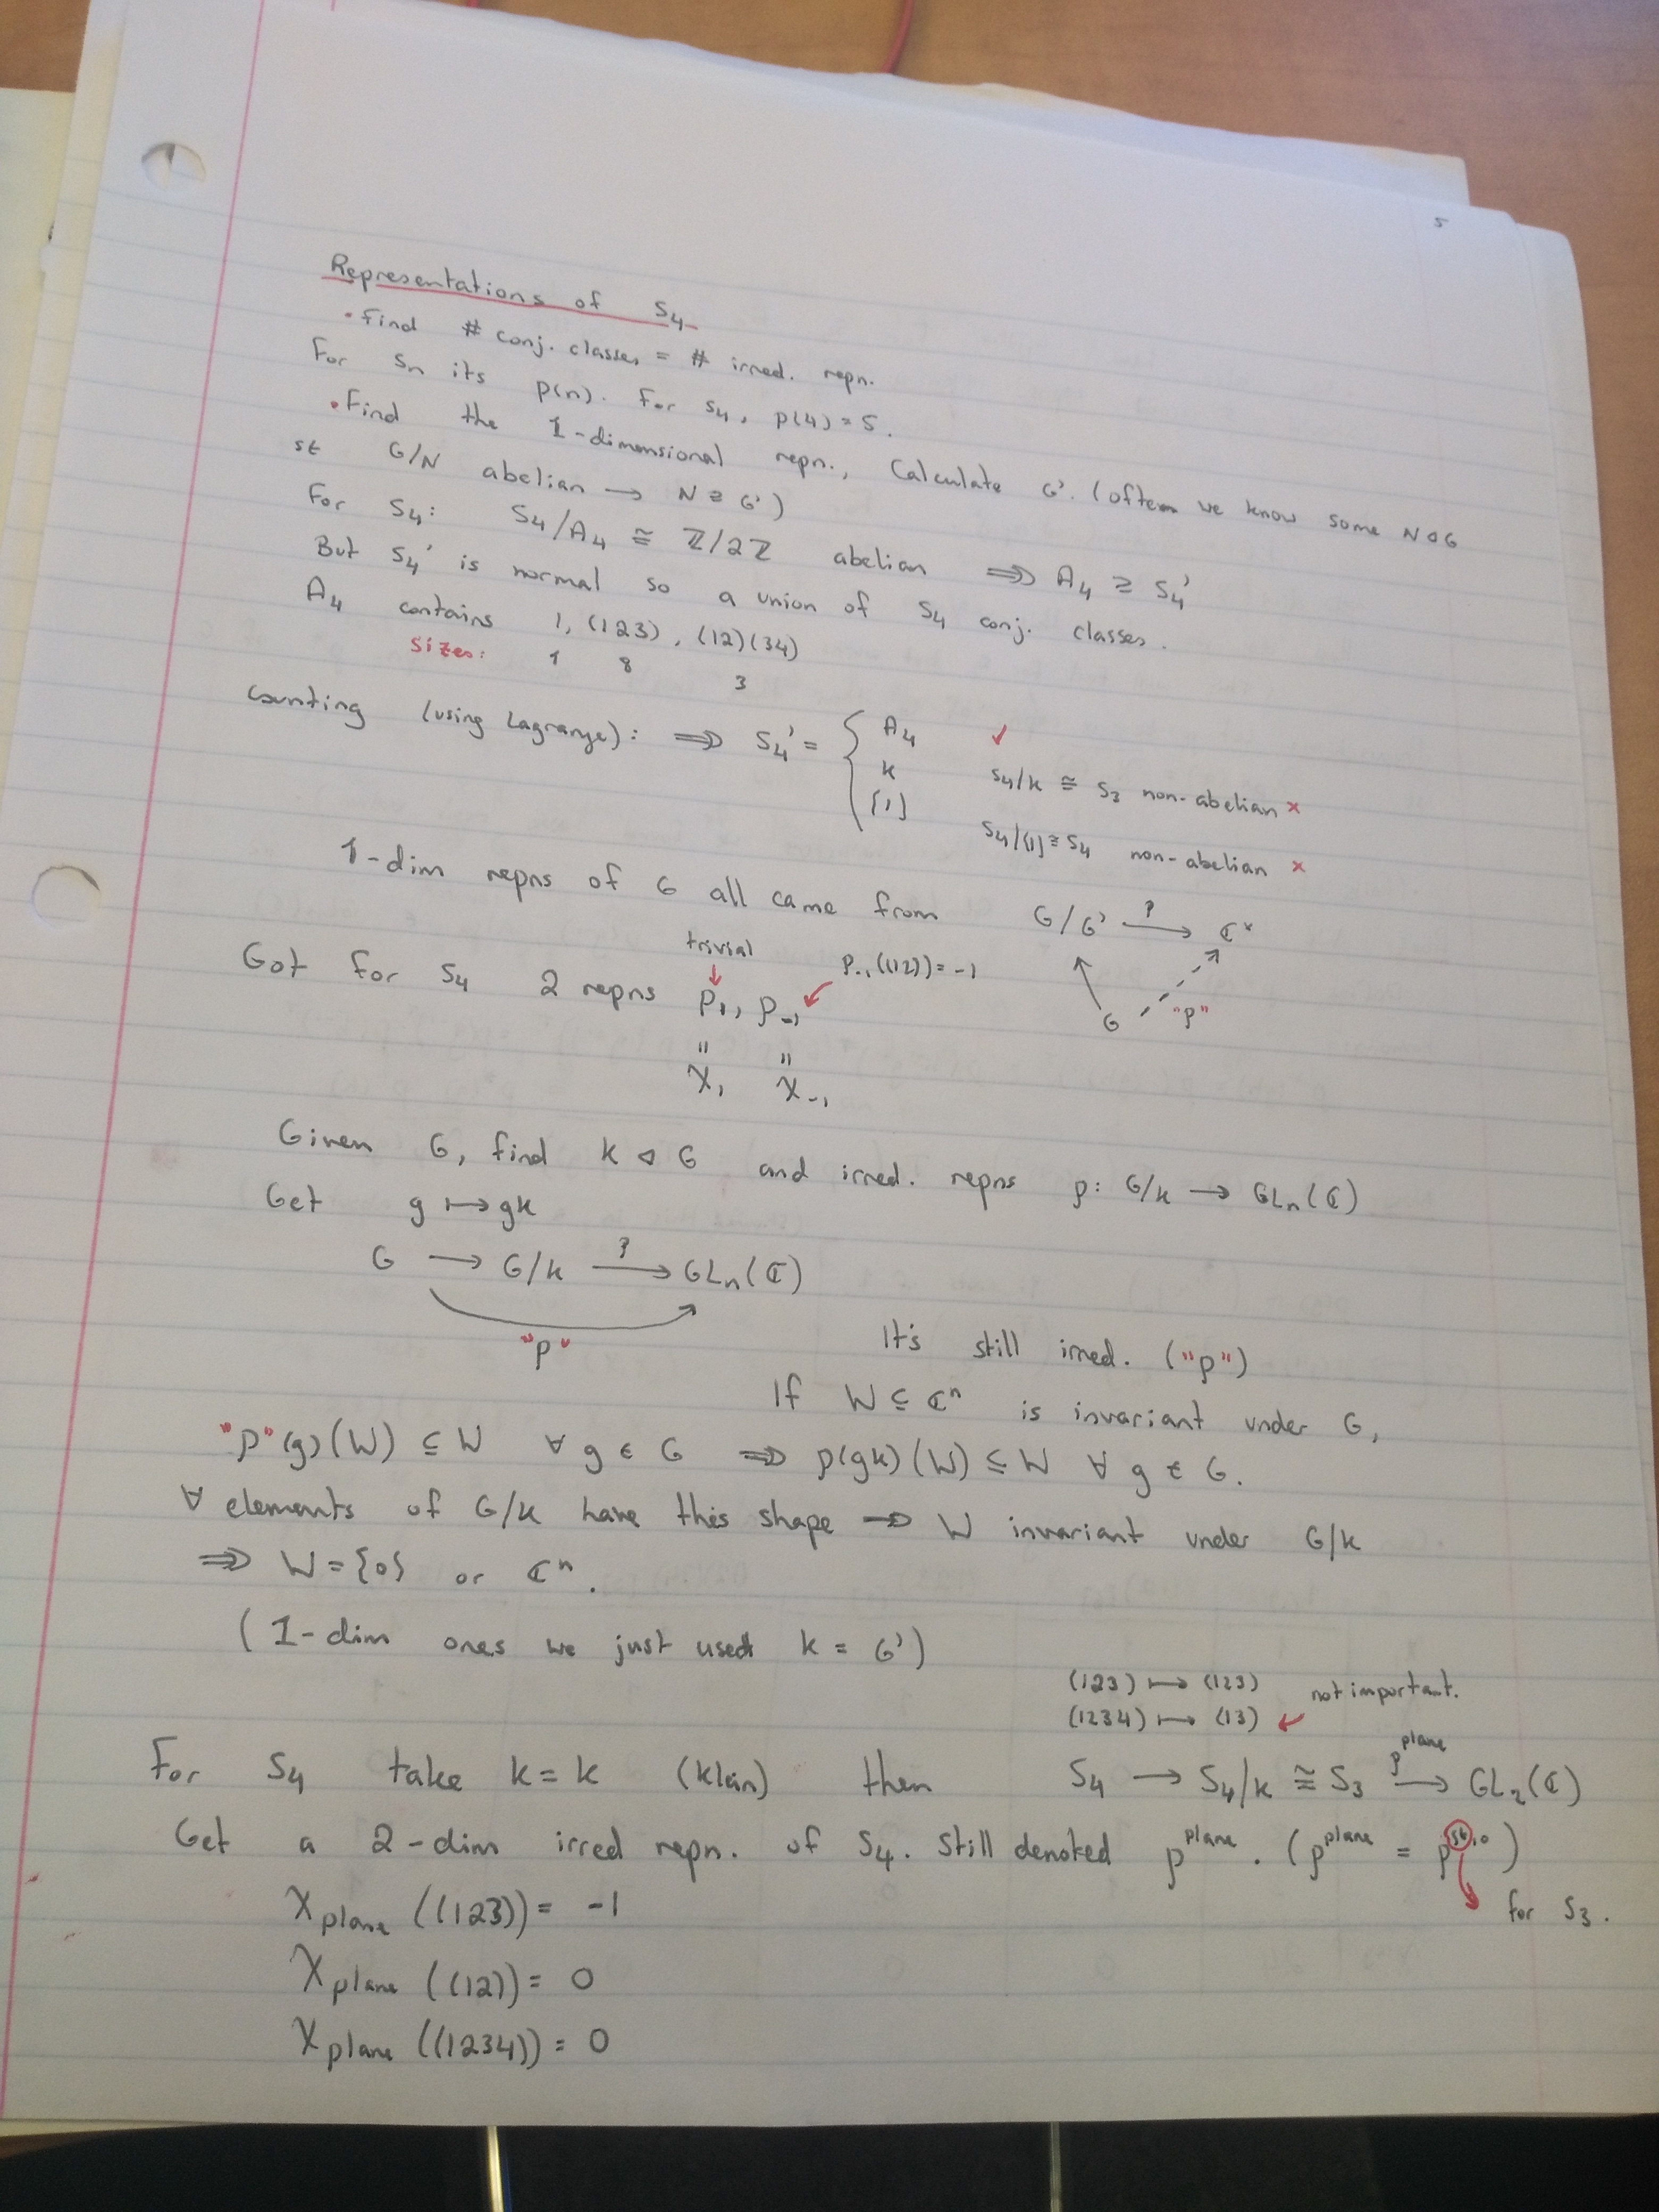 5
Representations of S₄
• Find # conj. classes = # irred. repn.
For Sn its p(n). For S₄, p(4) = 5.
• Find the 1-dimensional repn., Calculate G'. (often we know some N ⊲ G
st G/N abelian → N ⊇ G')
For S₄: S₄/A₄ ≅ ℤ/2ℤ abelian ⟹ A₄ ⊇ S₄'
But S₄' is normal so a union of S₄ conj. classes.
A₄ contains 1, (123), (12)(34)
Sizes: 1 8 3
Counting (using Lagrange): ⟹ S₄' = { A₄ ✓
K S₄/K ≅ S₃ non-abelian ×
{1} S₄/{1} ≅ S₄ non-abelian ×
1-dim repns of G all came from G/G' →ρ ℂˣ
trivial ρ₋₁((12)) = -1
Got for S₄ 2 repns ρ₁, ρ₋₁ G "ρ"
" "
χ₁ χ₋₁
Given G, find K ⊲ G and irred. repns ρ: G/K → GLn(ℂ)
Get g ↦ gK
G → G/K →ρ GLn(ℂ)
"ρ"
It's still irred. ("ρ")
If W ⊆ ℂⁿ is invariant under G,
"ρ"(g)(W) ⊆ W ∀ g ∈ G ⟹ ρ(gK)(W) ⊆ W ∀ g ∈ G.
∀ elements of G/K have this shape ⟹ W invariant under G/K
⟹ W = {0} or ℂⁿ.
(1-dim ones we just used K = G')
(123) ↦ (123) not important.
(1234) ↦ (13)
For S₄ take K = K (Klein) then S₄ → S₄/K ≅ S₃ →ρ^plane GL₂(ℂ)
Get a 2-dim irred repn. of S₄. Still denoted ρ^plane. (ρ^plane = ρ^st,0)
for S₃.
χplane((123)) = -1
χplane((12)) = 0
χplane((1234)) = 0